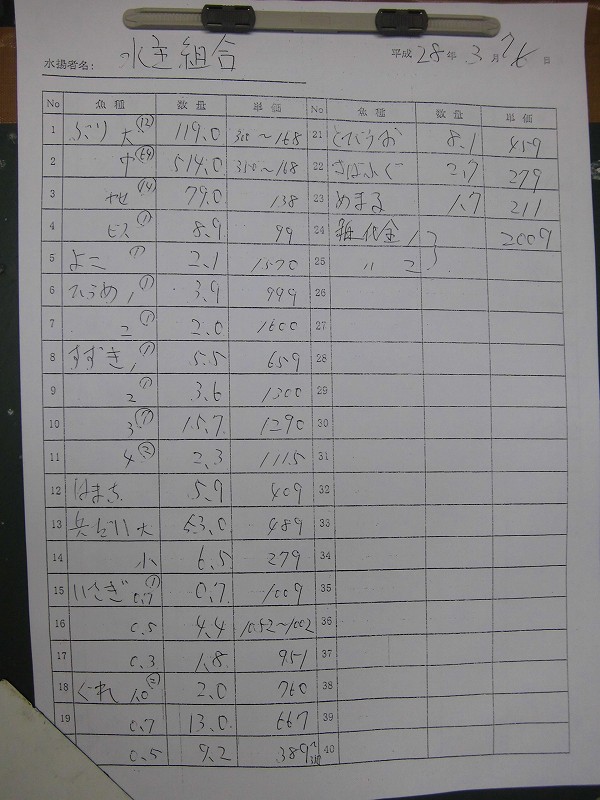 水揚者名: 水主組合
平成 28 年 3 月 日
No 魚種 数量 単価
1 ぶり 大 (12) 119.0 300~168
2 中 (64) 514.0 310~168
3 ヤセ (14) 79.0 138
4 ビス (1) 8.9 99
5 よこ (1) 2.1 1570
6 ひらめ 1 (1) 3.9 999
7 2 (1) 2.0 1600
8 すずき 1 (1) 5.5 659
9 2 (1) 3.6 1300
10 3 (7) 15.7 1290
11 4 (2) 2.3 1115
12 はまち 5.9 409
13 大 53.0 489
14 小 6.5 279
15 いさぎ 0.7 (1) 0.7 1009
16 0.5 4.4 1052~1002
17 0.3 1.8 951
18 ぐれ 1.0 (2) 2.0 760
19 0.7 13.0 667
0.5 9.2 389~310
No 魚種 数量 単価
21 とびうお 8.1 457
22 さばふぐ 2.7 279
23 めまる 1.7 211
24 箱代金 1 2007
25 〃 2
26
27
28
29
30
31
32
33
34
35
36
37
38
39
40